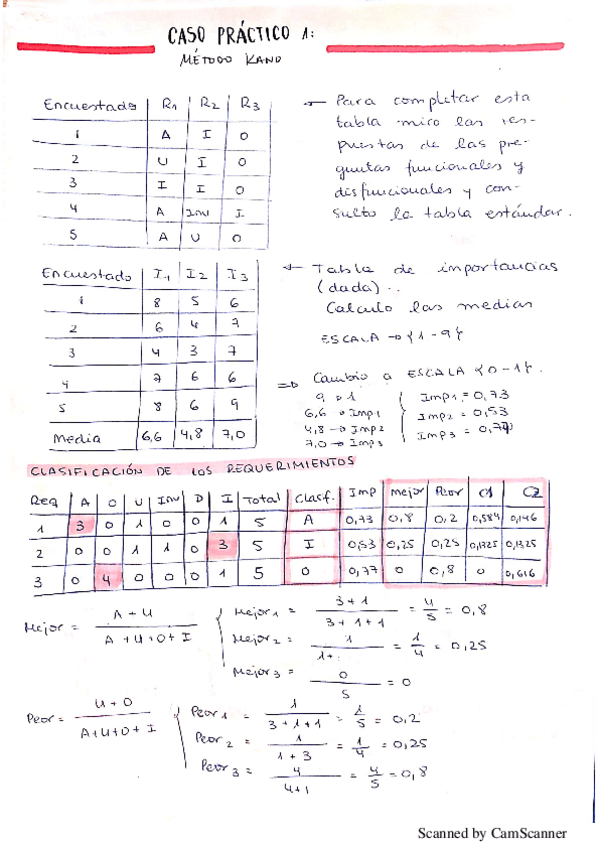 CASO PRÁCTICO 1:
MÉTODO KANO
Encuestado R1 R2 R3
1 A I O
2 U I O
3 I I O
4 A Inv I
5 A U O
← Para completar esta
tabla miro las res-
puestas de las pre-
guntas funcionales y
disfuncionales y con-
sulto la tabla estándar.
Encuestado I1 I2 I3
1 8 5 6
2 6 4 7
3 4 3 7
4 7 6 6
5 8 6 9
Media 6,6 4,8 7,0
← Tabla de importancias
(dada)..
Calculo las medias
ESCALA → {1-9}
⇒ Cambio a ESCALA {0-1}.
9 → 1
6,6 → Imp1
4,8 → Imp2
7,0 → Imp3
Imp1 = 0,73
Imp2 = 0,53
Imp3 = 0,77
CLASIFICACIÓN DE LOS REQUERIMIENTOS
Req A O U Inv D I Total Clasf. Imp Mejor Peor C1 C2
1 3 0 1 0 0 1 5 A 0,73 0,8 0,2 0,584 0,146
2 0 0 1 1 0 3 5 I 0,53 0,25 0,25 0,1325 0,1325
3 0 4 0 0 0 1 5 O 0,77 0 0,8 0 0,616
Mejor = A + U / A + U + O + I
Mejor1 = 3+1 / 3+1+1 = 4/5 = 0,8
Mejor2 = 1 / 1+. = 1/4 = 0,25
Mejor3 = 0 / 5 = 0
Peor = U + O / A+U+O+I
Peor1 = 1 / 3+1+1 = 1/5 = 0,2
Peor2 = 1 / 1+3 = 1/4 = 0,25
Peor3 = 4 / 4+1 = 4/5 = 0,8
Scanned by CamScanner